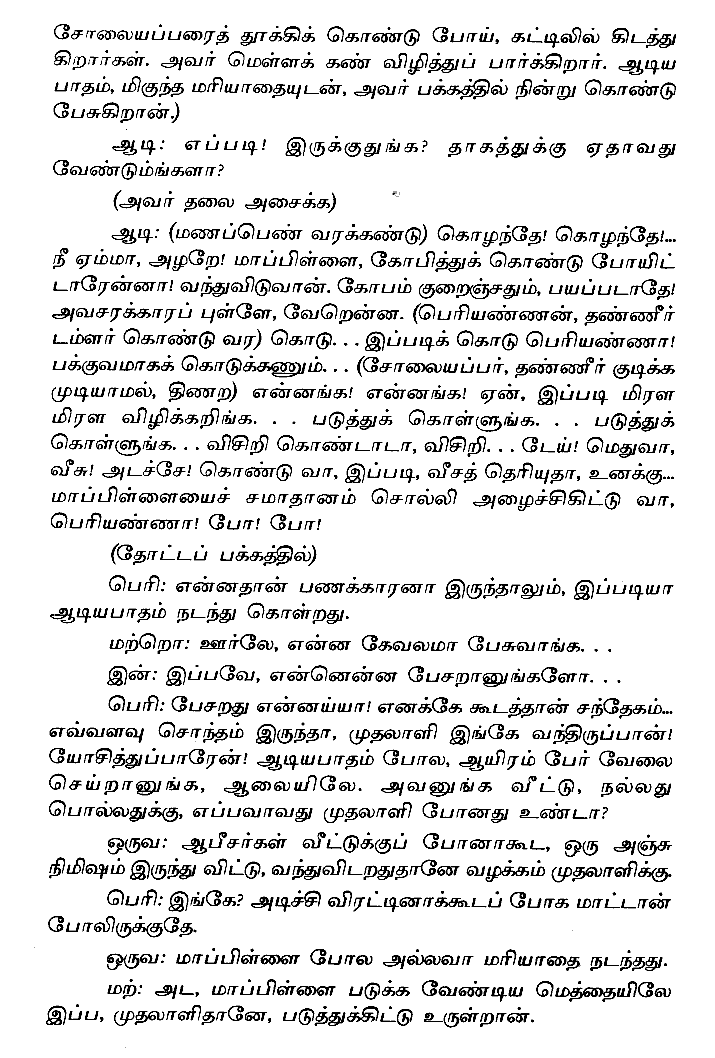 சோலையப்பரைத் தூக்கிக் கொண்டு போய், கட்டிலில் கிடத்து
கிறார்கள். அவர் மெள்ளக் கண் விழித்துப் பார்க்கிறார். ஆடிய
பாதம், மிகுந்த மரியாதையுடன், அவர் பக்கத்தில் நின்று கொண்டு
பேசுகிறான்.)
ஆடி: எப்படி! இருக்குதுங்க? தாகத்துக்கு ஏதாவது
வேண்டும்ங்களா?
(அவர் தலை அசைக்க)
ஆடி: (மணப்பெண் வரக்கண்டு) கொழந்தே! கொழந்தே!...
நீ ஏம்மா, அழறே! மாப்பிள்ளை, கோபித்துக் கொண்டு போயிட்
டாரேன்னா! வந்துவிடுவான். கோபம் குறைஞ்சதும், பயப்படாதே!
அவசரக்காரப் புள்ளே, வேறென்ன. (பெரியண்ணன், தண்ணீர்
டம்ளர் கொண்டு வர) கொடு. . . இப்படிக் கொடு பெரியண்ணா!
பக்குவமாகக் கொடுக்கணும். . . (சோலையப்பர், தண்ணீர் குடிக்க
முடியாமல், திணற) என்னங்க! என்னங்க! ஏன், இப்படி மிரள
மிரள விழிக்கறிங்க. . . படுத்துக் கொள்ளுங்க. . . படுத்துக்
கொள்ளுங்க. . . விசிறி கொண்டாடா, விசிறி. . . டேய்! மெதுவா,
வீசு! அடச்சே! கொண்டு வா, இப்படி, வீசத் தெரியுதா, உனக்கு...
மாப்பிள்ளையைச் சமாதானம் சொல்லி அழைச்சிகிட்டு வா,
பெரியண்ணா! போ! போ!
(தோட்டப் பக்கத்தில்)
பெரி: என்னதான் பணக்காரனா இருந்தாலும், இப்படியா
ஆடியபாதம் நடந்து கொள்றது.
மற்றொ: ஊர்லே, என்ன கேவலமா பேசுவாங்க. . .
இன்: இப்பவே, என்னென்ன பேசறானுங்களோ. . .
பெரி: பேசறது என்னய்யா! எனக்கே கூடத்தான் சந்தேகம்...
எவ்வளவு சொந்தம் இருந்தா, முதலாளி இங்கே வந்திருப்பான்!
யோசித்துப்பாரேன்! ஆடியபாதம் போல, ஆயிரம் பேர் வேலை
செய்றானுங்க, ஆலையிலே. அவனுங்க வீட்டு, நல்லது
பொல்லதுக்கு, எப்பவாவது முதலாளி போனது உண்டா?
ஒருவ: ஆபீசர்கள் வீட்டுக்குப் போனாகூட, ஒரு அஞ்சு
நிமிஷம் இருந்து விட்டு, வந்துவிடறதுதானே வழக்கம் முதலாளிக்கு.
பெரி: இங்கே? அடிச்சி விரட்டினாக்கூடப் போக மாட்டான்
போலிருக்குதே.
ஒருவ: மாப்பிள்ளை போல அல்லவா மரியாதை நடந்தது.
மற்: அட, மாப்பிள்ளை படுக்க வேண்டிய மெத்தையிலே
இப்ப, முதலாளிதானே, படுத்துக்கிட்டு உருள்றான்.